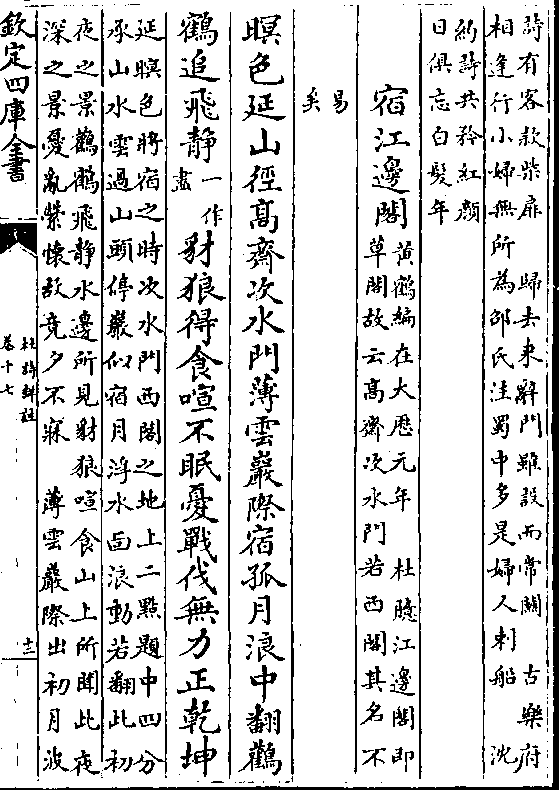 詩有客款柴扉　歸去來辭門雖設而常關　古樂府
相逢行小婦無所為邵氏注蜀中多是婦人刺船　沈
約詩共矜紅顔
日俱忘白髮年
宿江邊閣
黄鶴編在大厯元年　杜臆江邊閣即
草閣故云高齋次水門若西閣其名不
易
矣
暝色延山徑高齋次水門薄雲巖際宿孤月浪中翻鸛
鶴追飛静
一作
盡
豺狼得食喧不眠憂戰伐無力正乾坤
延暝色將宿之時次水門西閣之地上二點題中四分
承山水雲過山頭停巖似宿月浮水面浪動若翻此初
夜之景鸛鶴飛静水邊所見豺狼喧食山上所聞此夜
深之景憂亂縈懷故竟夕不寐　薄雲巖際出初月波
欽定四庫全書
杜詩詳註
卷十七
十二